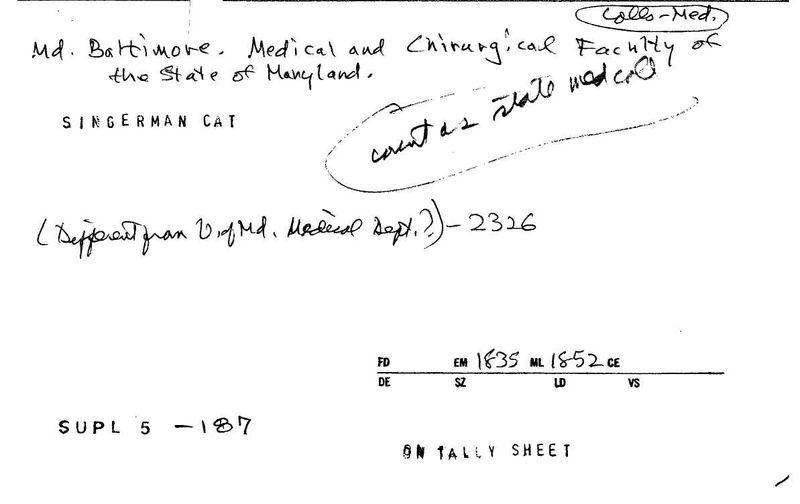 Colls-Med.
Md. Baltimore. Medical and Chirurgical Faculty of
the State of Maryland.
SINGERMAN CAT
count as state med col
(Different from U. of Md. Medical Dept.?) - 2326
FD EM 1835 ML 1852 CE
DE SZ LD VS
SUPL 5 - 187
ON TALLY SHEET